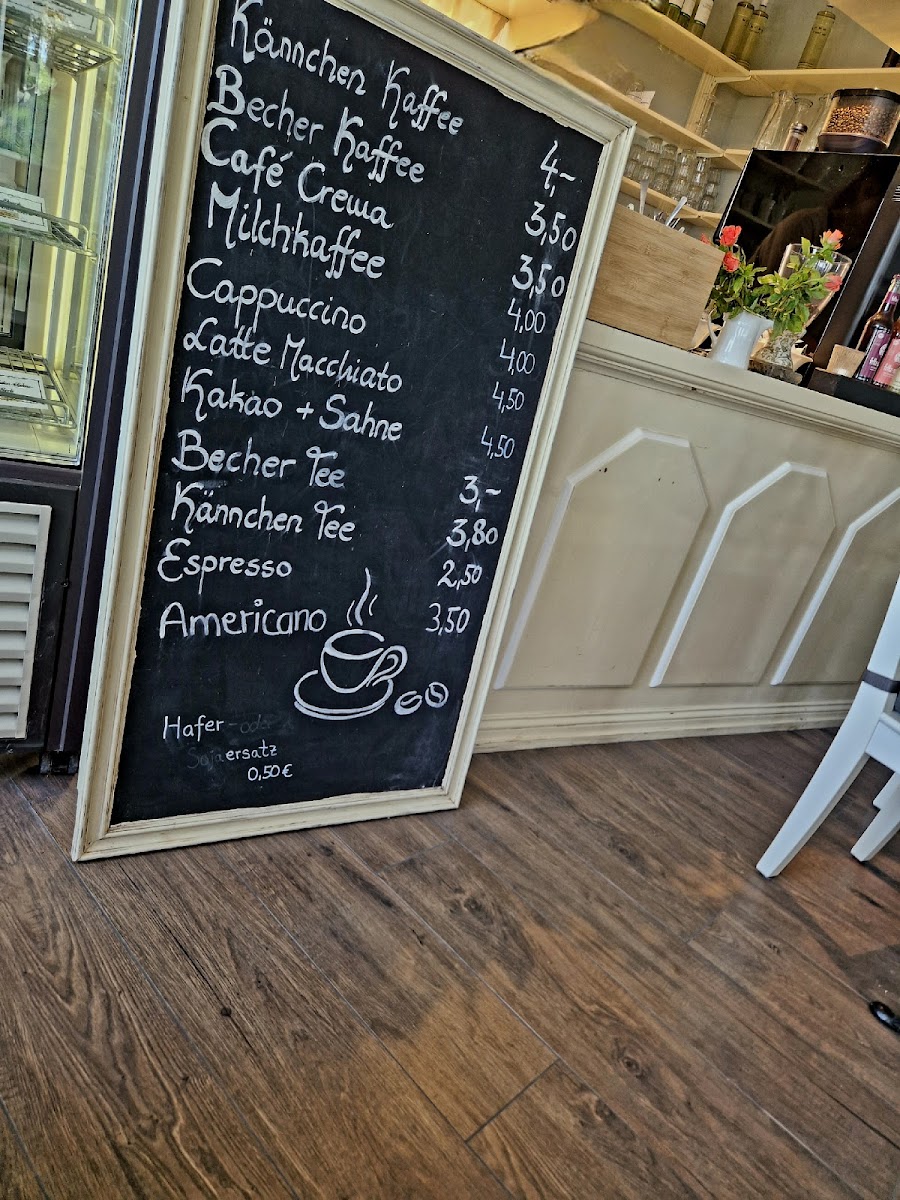 Kännchen Kaffee 4,-
Becher Kaffee 3,50
Café Crema 3,50
Milchkaffee 4,00
Cappuccino 4,00
Latte Macchiato 4,50
Kakao + Sahne 4,50
Becher Tee 3,-
Kännchen Tee 3,80
Espresso 2,50
Americano 3,50
Hafer-oder
Sojaersatz
0,50€